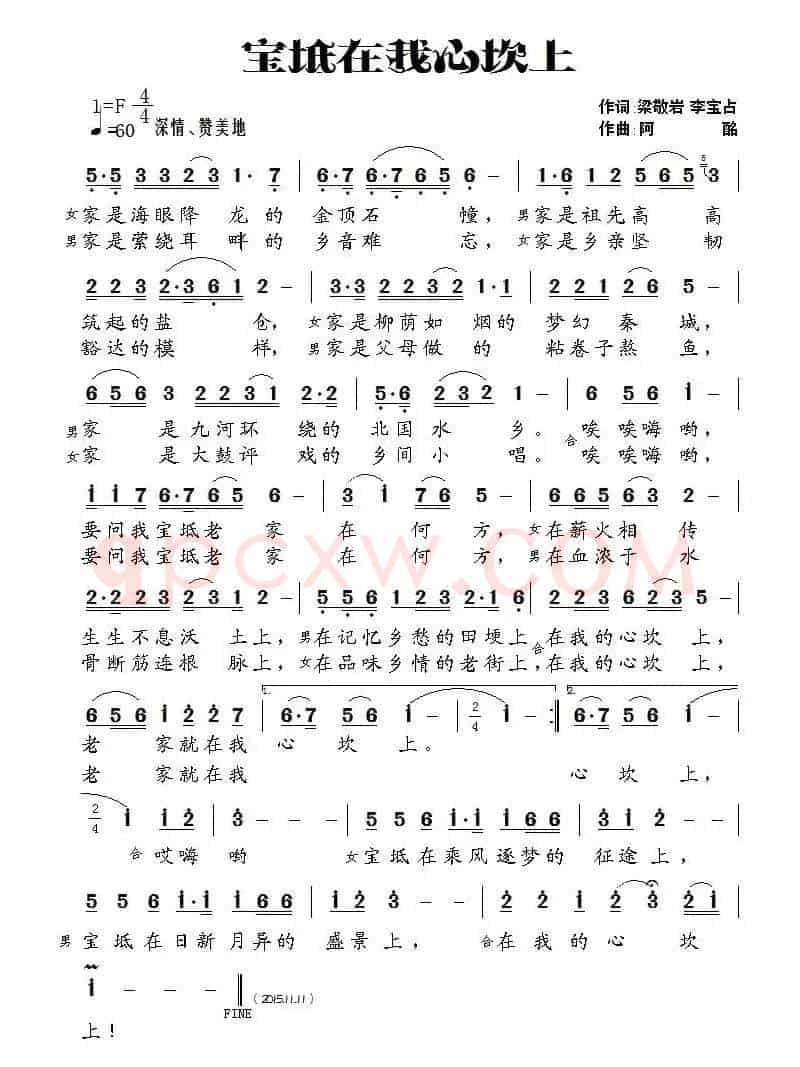 宝坻在我心坎上
1=F 4/4
作词:梁敬岩 李宝占
♩=60 深情、赞美地
作曲:阿 酩
5·5 3323 1·7 | 6·7 6·765 6 - | 1·6 12 565 3
女家是海眼降龙的金顶石幢，男家是祖先高高
男家是萦绕耳畔的乡音难忘，女家是乡亲坚韧
223 2·361 2 - | 3·3 2232 1·2 | 2212 6 5 -
筑起的盐仓，女家是柳荫如烟的梦幻秦城，
豁达的模样，男家是父母做的粘卷子熬鱼，
656 3 2231 2·2 | 5·6 223 1 - | 6 656 i -
男家是九河环绕的北国水乡。合唉唉嗨哟，
女家是大鼓评戏的乡间小唱。合唉唉嗨哟，
ii7 6·765 6 - | 3 i 76 5 - | 565 63 2 -
要问我宝坻老家在何方，女在薪火相传
要问我宝坻老家在何方，男在血浓于水
2·223 231 2 - | 556 123 2·16 | 2363 623 5 -
生生不息沃土上，男在记忆乡愁的田埂上合在我的心坎上，
骨断筋连根脉上，女在品味乡情的老街上，合在我的心坎上，
1.
2.
656 i22 7 | 6·7 56 i - | 2/4 i - :| 6·7 56 i -
老家就在我心坎上。
老家就在我心坎上，
2/4 i i2 | 3 - - - | 556 i·i i66 | i 2 3 -
合哎嗨哟 女宝坻在乘风逐梦的征途上，
556 i·i i66 | i 2 3 - | 2 2 i 2 3 | 2i
男宝坻在日新月异的盛景上，合在我的心坎
i - - - ‖ (2015.11.11)
FINE
上!
qpcxw.COM